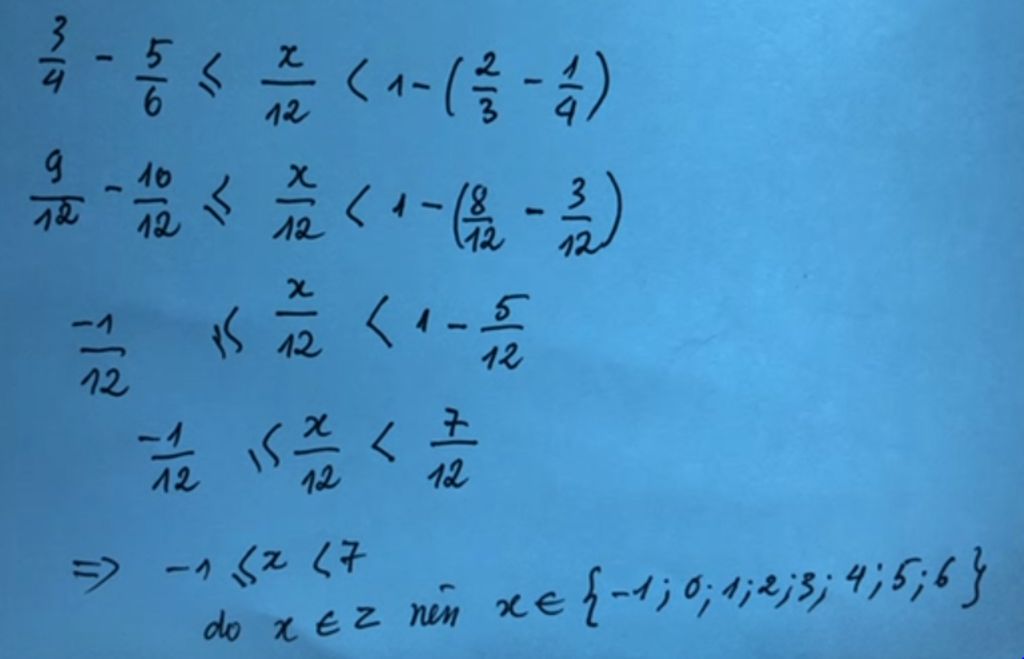 3/4 - 5/6 ⩽ x/12 < 1-(2/3 - 1/4)
9/12 - 10/12 ⩽ x/12 < 1-(8/12 - 3/12)
-1/12 ⩽ x/12 < 1 - 5/12
-1/12 ⩽ x/12 < 7/12
=> -1 ⩽ x < 7
do x ∈ Z nên x ∈ {-1; 0; 1; 2; 3; 4; 5; 6}